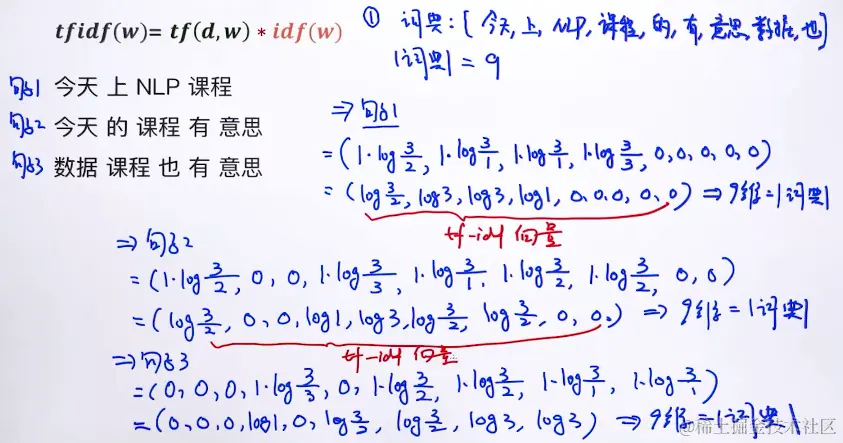 tfidf(w)= tf(d,w) * idf(w)
① 词典:[今天,上,NLP,课程,的,有,意思,数据,也]
|词典| = 9
句子1 今天 上 NLP 课程
句子2 今天 的 课程 有 意思
句子3 数据 课程 也 有 意思
⇒ 句子1
= (1·log 3/2, 1·log 3/1, 1·log 3/1, 1·log 3/3, 0, 0, 0, 0, 0)
= (log 3/2, log3, log3, log1, 0, 0, 0, 0, 0) ⇒ 9维 = |词典|
tf-idf 向量
⇒ 句子2
= (1·log 3/2, 0, 0, 1·log 3/3, 1·log 3/1, 1·log 3/2, 1·log 3/2, 0, 0)
= (log 3/2, 0, 0, log1, log3, log 3/2, log 3/2, 0, 0) ⇒ 9维 = |词典|
tf-idf 向量
⇒ 句子3
= (0, 0, 0, 1·log 3/3, 0, 1·log 3/2, 1·log 3/2, 1·log 3/1, 1·log 3/1)
= (0, 0, 0, log1, 0, log 3/2, log 3/2, log3, log3) ⇒ 9维 = |词典|
@稀土掘金技术社区